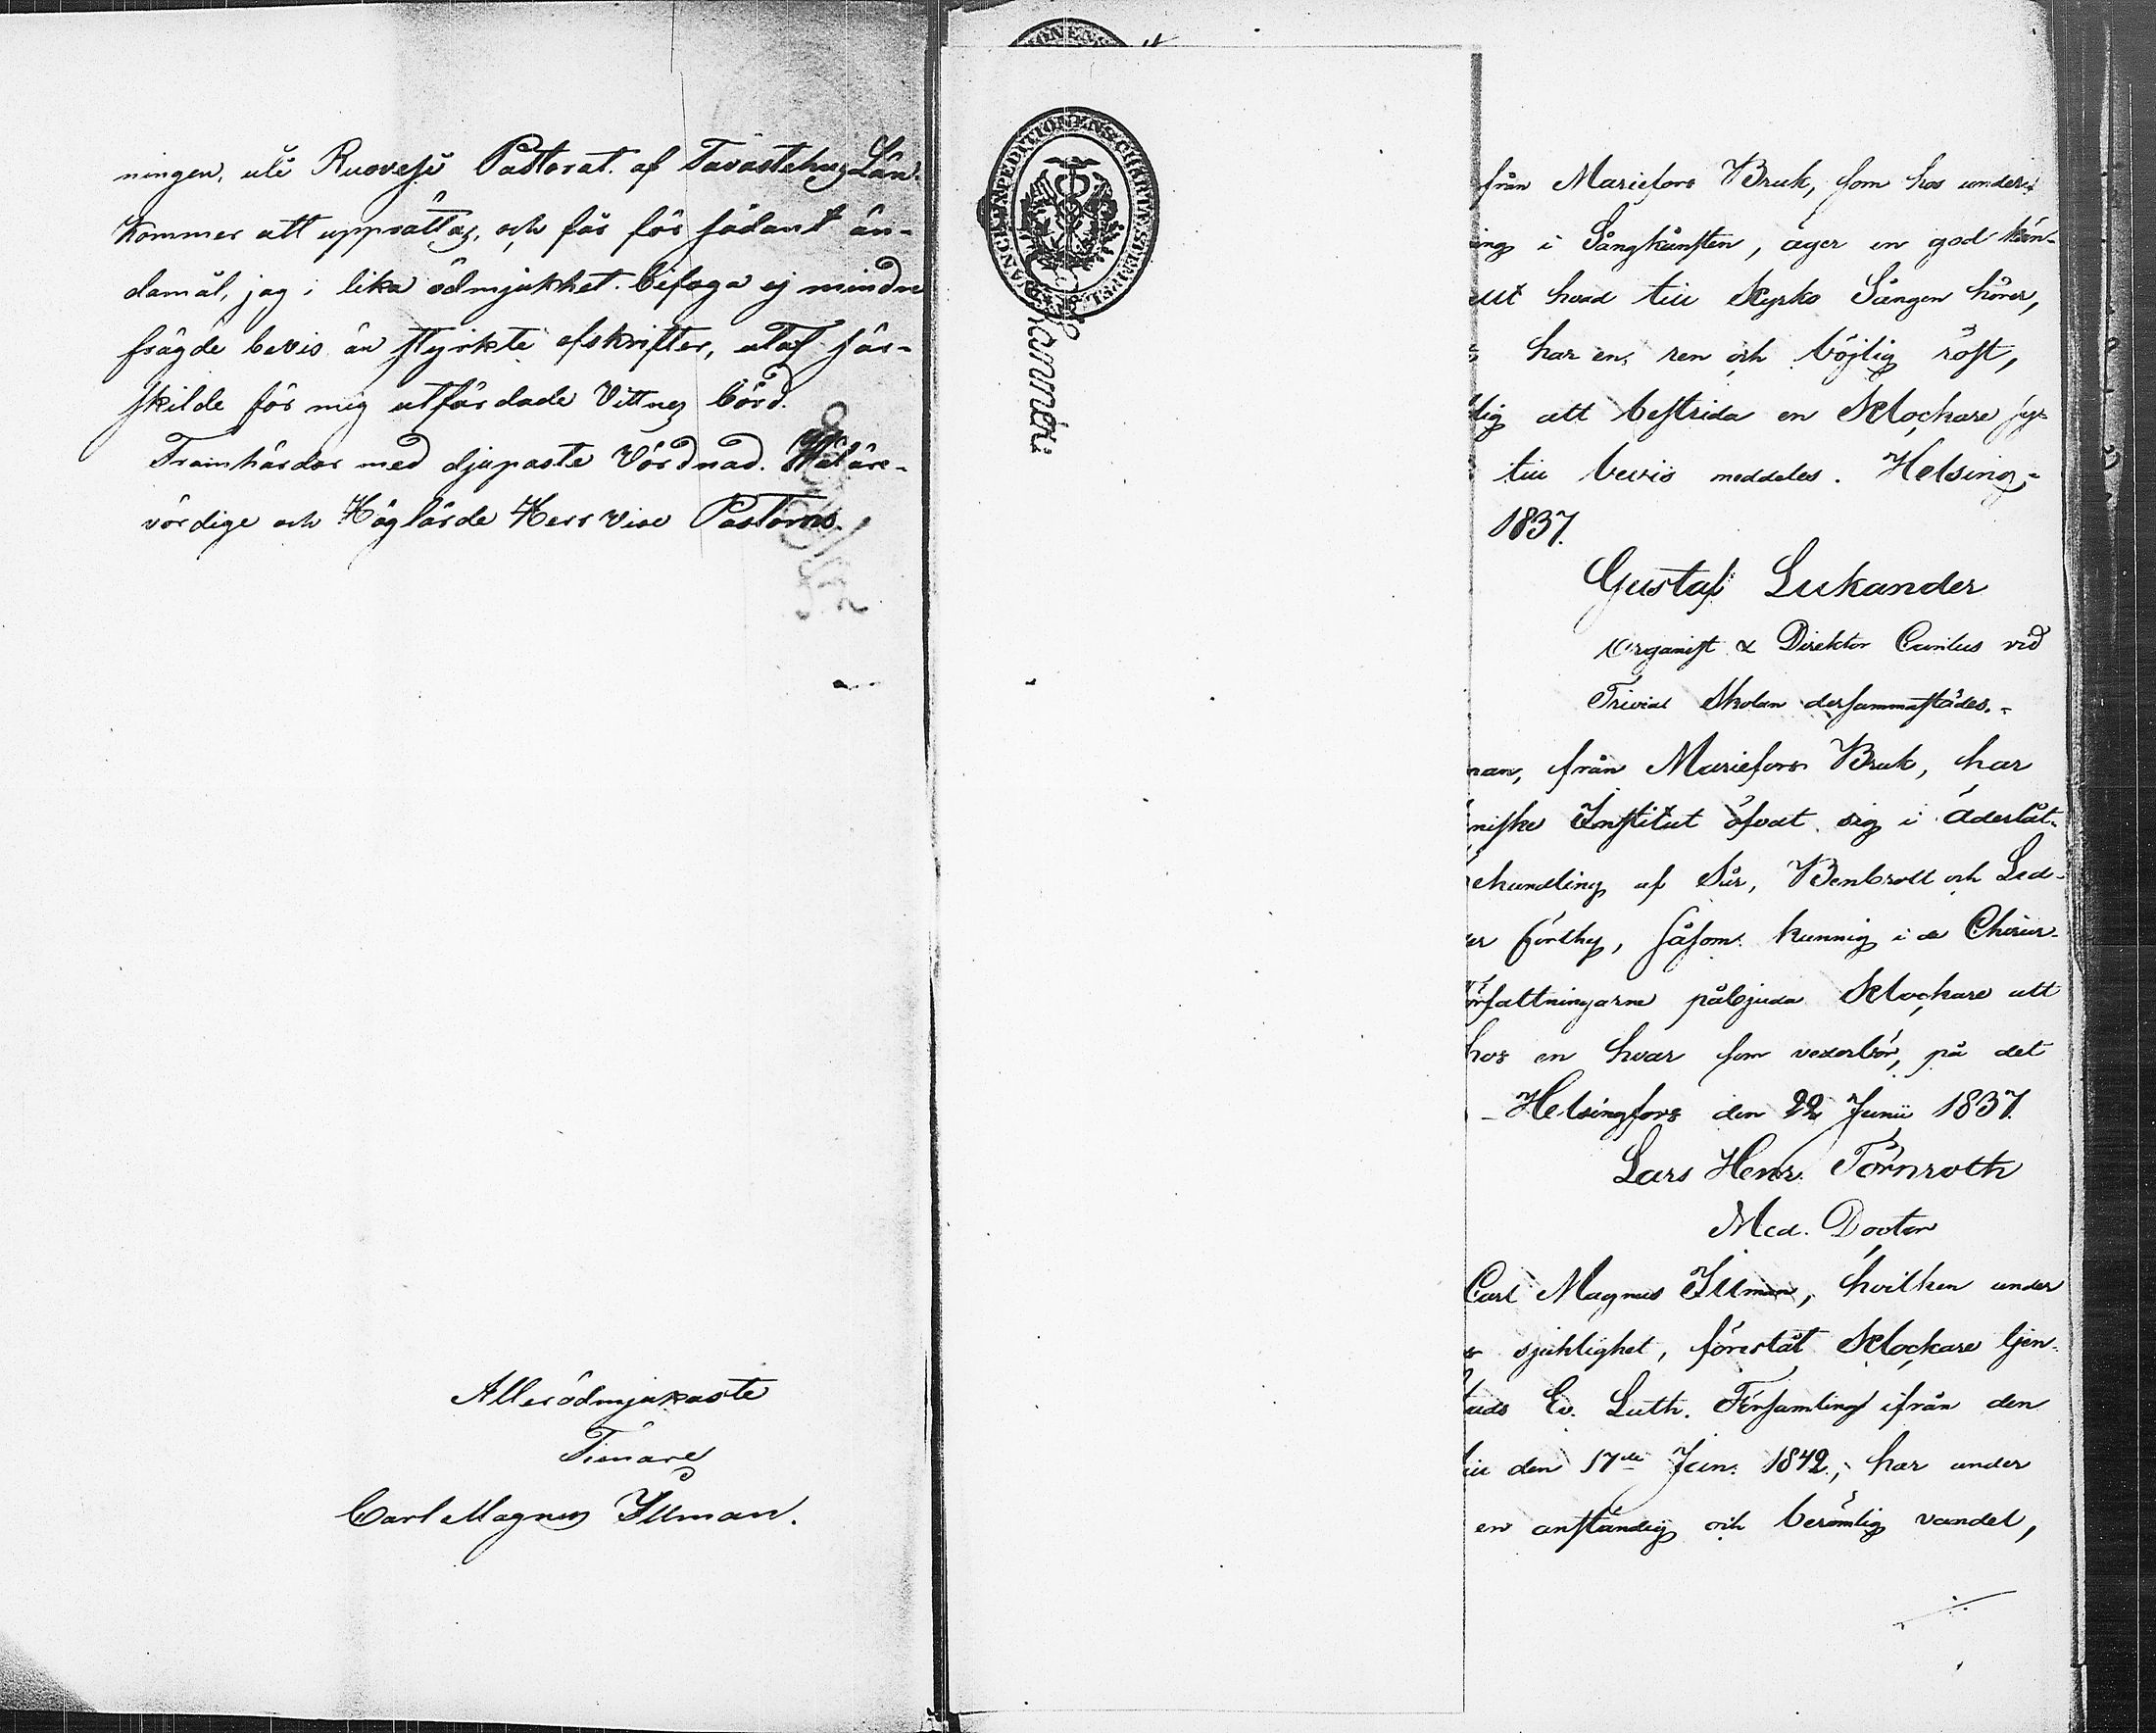 ningen, uti Ruovesi Pastorat. af Tavastehus Län.
kommer att upprättas, och får för sådant än-
damål, jag i lika ödmjukhet. bifoga ej mindre
frägde bevis än styrkte afskrifter, utaf sär-
skilde för mig utfärdade Vittnes börd.
Framhärdar med djupaste Vördnad.
vördige och Höglärde Herr Vice Pastorns
Allerödmjukaste
Tienare
Carl Magnus Illman.
från Mariefors Bruk, som hos under-
ing i Sångkånsten, äger en god kän-
hvad till Kyrko Sången hörer,
har en, ren och böjlig röst,
lig att bestrida en Klockare sys
till bevis meddeles. Helsing-
1837.
Gustaf Lukander
Organist & Direktor Cantus vid
Trivial Skolan dersammastädes.-
man, från Mariefors Bruk, har
niske Institut öfvat sig i Åderlåt-
ehandling af Sår, Benbrott och Led-
er förthy, såsom kunnig i de Chirur-
örfattningarne påbjuda Klockare att
hos en hvar som vederbör, på det
- Helsingfors den 22 Junii 1837.
Lars Henr. Törnroth
Med. Doctor
Carl Magnus Illman, hvilken under
sjuklighet, förestått Klockare tjen-
Ev. Luth. Församling ifrån den
den 17de Jun. 1842, har under
en anständig och berömlig vandel,